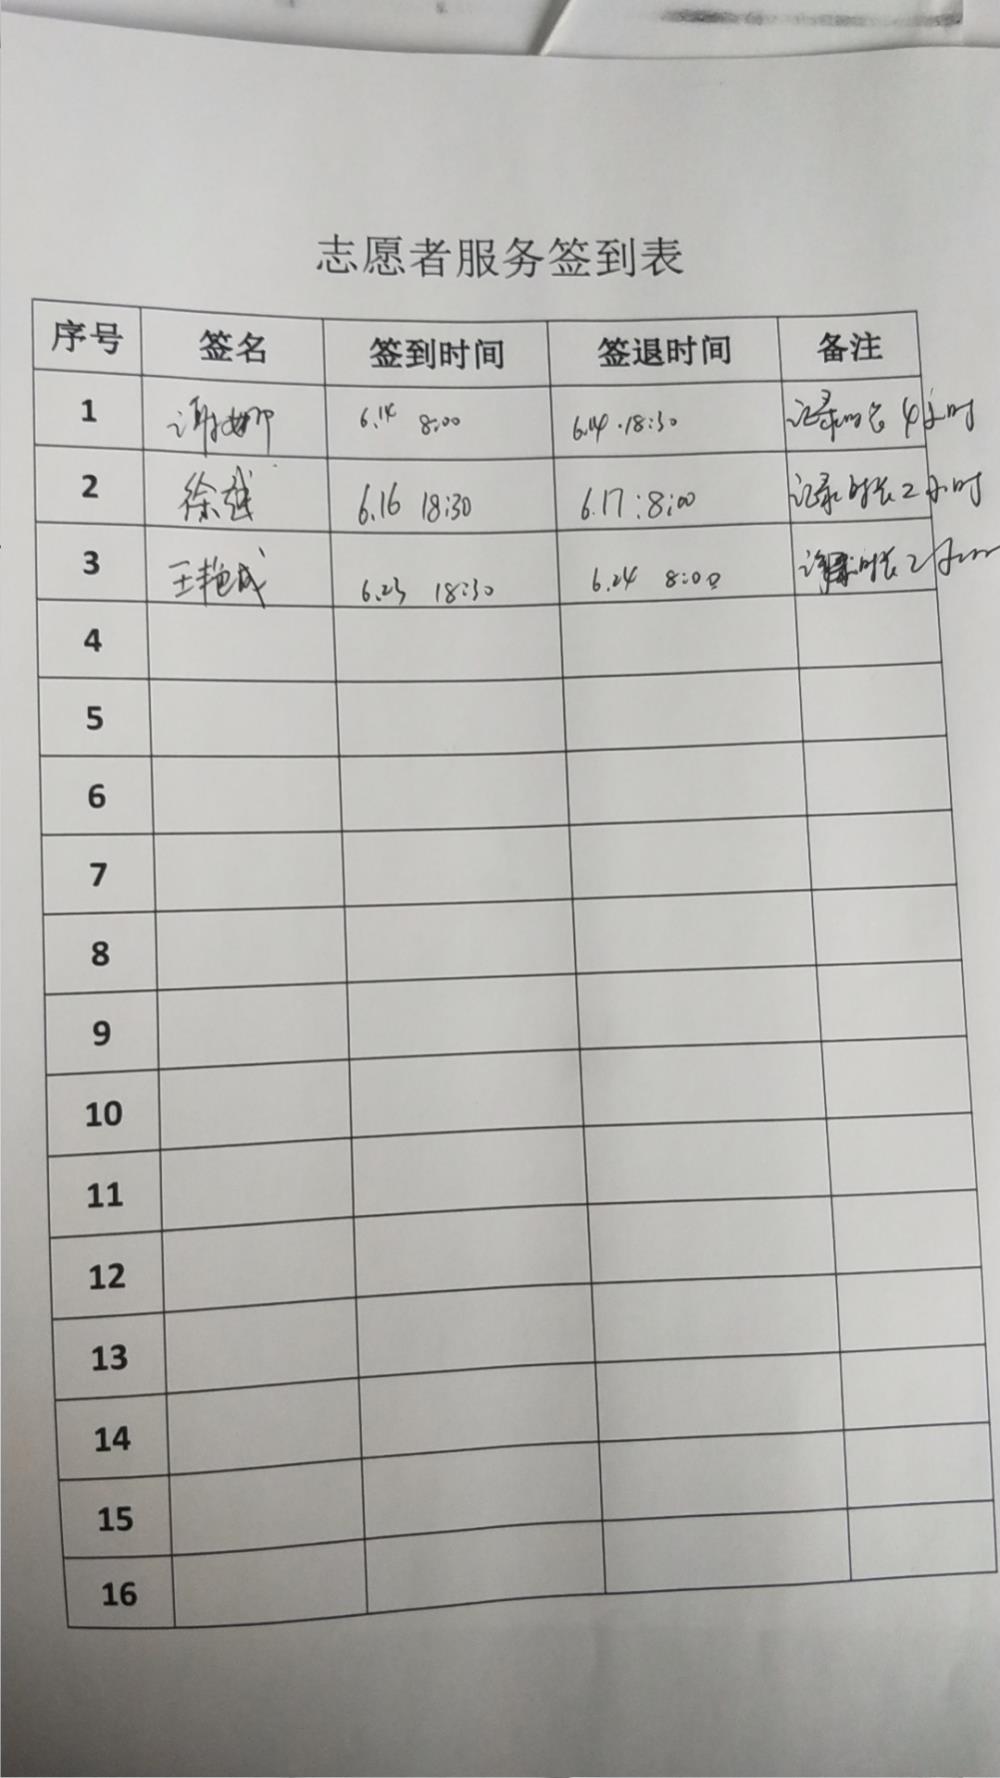 志愿者服务签到表
序号 签名 签到时间 签退时间 备注
1 谢娜 6.14 8:00 6.14.18:30 记录时长4小时
2 徐越 6.16 18:30 6.17:8:00 记录时长2小时
3 王艳成 6.23 18:30 6.24 8:00 时长2小时
4
5
6
7
8
9
10
11
12
13
14
15
16